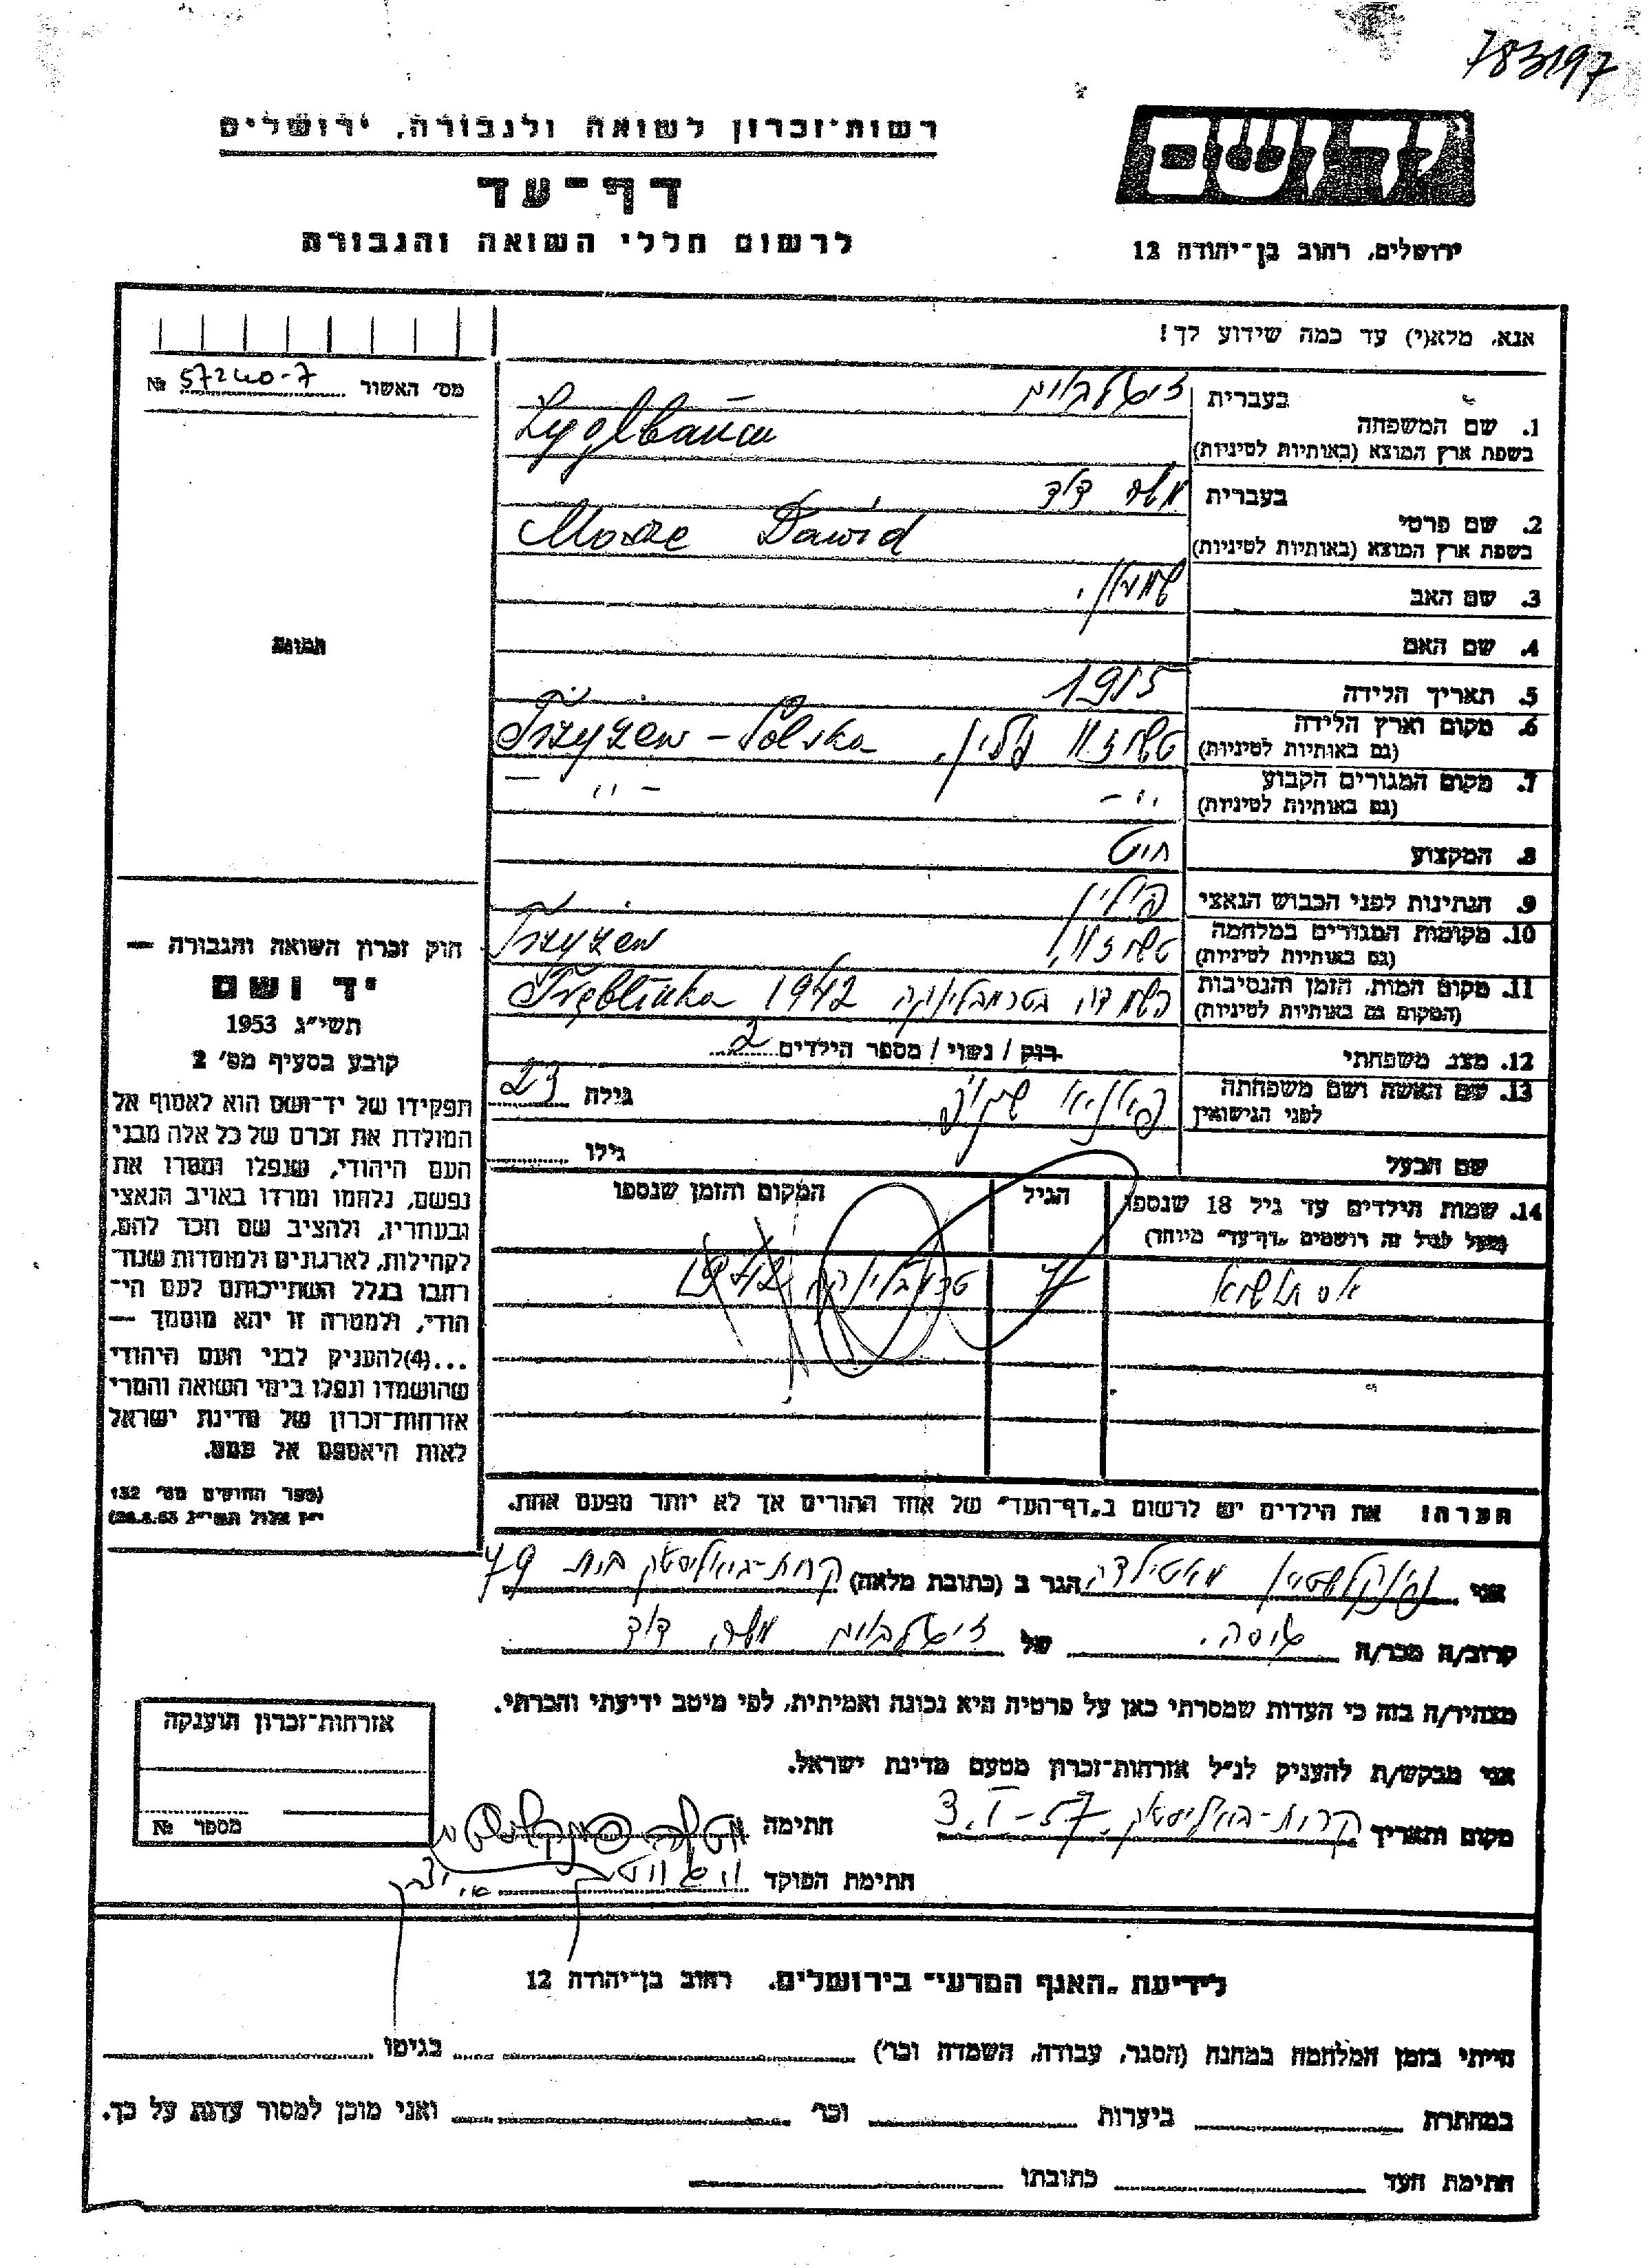 783197
רשות־זכרון לשואה ולגבורה, ירושלים
יד ושם
דף־עד
לרשום חללי השואה והגבורה
ירושלים, רחוב בן־יהודה 12
אנא, מלא(י) עד כמה שידוע לך!
מס׳ האשור 57240-7 №
בעברית
1. שם המשפחה
בשפת ארץ המוצא (באותיות לטיניות)
בעברית משה דוד
2. שם פרטי
בשפת ארץ המוצא (באותיות לטיניות) Dawid
3. שם האב שמעון.
4. שם האם
תמונה
5. תאריך הלידה 1915
6. מקום וארץ הלידה
(גם באותיות לטיניות) פולין. Polska
7. מקום המגורים הקבוע
(גם באותיות לטיניות) -״- -״-
8. המקצוע חייט
9. הנתינות לפני הכבוש הנאצי פולין
10. מקומות המגורים במלחמה
(גם באותיות לטיניות)
11. מקום המות, הזמן והנסיבות
(המקום גם באותיות לטיניות) בטרבלינקה 1942 Treblinka
12. מצב משפחתי רוק / נשוי / מספר הילדים 2
13. שם האשה ושם משפחתה
לפני הנישואין גילה 23
שם הבעל גילו
14. שמות הילדים עד גיל 18 שנספו הגיל המקום והזמן שנספו
(מעל לגיל זה רושמים „דף־עד״ מיוחד)
טרבלינקה
הערה: את הילדים יש לרשום ב„דף־העד״ של אחד ההורים אך לא יותר מפעם אחת.
חוק זכרון השואה והגבורה —
יד ושם
תשי״ג 1953
קובע בסעיף מס׳ 2
תפקידו של יד־ושם הוא לאסוף אל
המולדת את זכרם של כל אלה מבני
העם היהודי, שנפלו ומסרו את
נפשם, נלחמו ומרדו באויב הנאצי
ובעוזריו, ולהציב שם וזכר להם,
לקהילות, לארגונים ולמוסדות שנח־
רבו בגלל השתייכותם לעם הי־
הודי, ולמטרה זו יהא מוסמך —
...(4)להעניק לבני העם היהודי
שהושמדו ונפלו בימי השואה והמרי
אזרחות־זכרון של מדינת ישראל
לאות היאספם אל עמם.
(ספר החוקים מס׳ 132
י״ז אלול תשי״ג 28.8.53)
אני פינקלשטיין מאטילדה הגר ב (כתובת מלאה) קרית-ביאליסטוק בית 79
קרוב/ה מכר/ה של משה דוד
מצהיר/ה בזה כי העדות שמסרתי כאן על פרטיה היא נכונה ואמיתית, לפי מיטב ידיעתי והכרתי.
אני מבקש/ת להעניק לנ״ל אזרחות־זכרון מטעם מדינת ישראל.
מקום ותאריך קרית-ביאליסטוק, 3.I-57 חתימה
חתימת הפוקד
אזרחות־זכרון הוענקה
מספר №
לידיעת „האגף המדעי״ בירושלים, רחוב בן־יהודה 12
הייתי בזמן המלחמה במחנה (הסגר, עבודה, השמדה וכר׳) בגיטו
במחתרת ביערות וכר׳ ואני מוכן למסור עדות על כך.
חתימת העד כתובתו